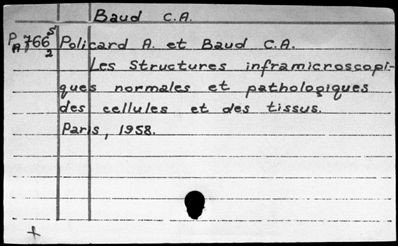 Baud C.A.
PA 766 S2 Policard A. et Baud C.A.
Les Structures inframicroscopi-
ques normales et pathologiques
des cellules et des tissus.
Paris, 1958.